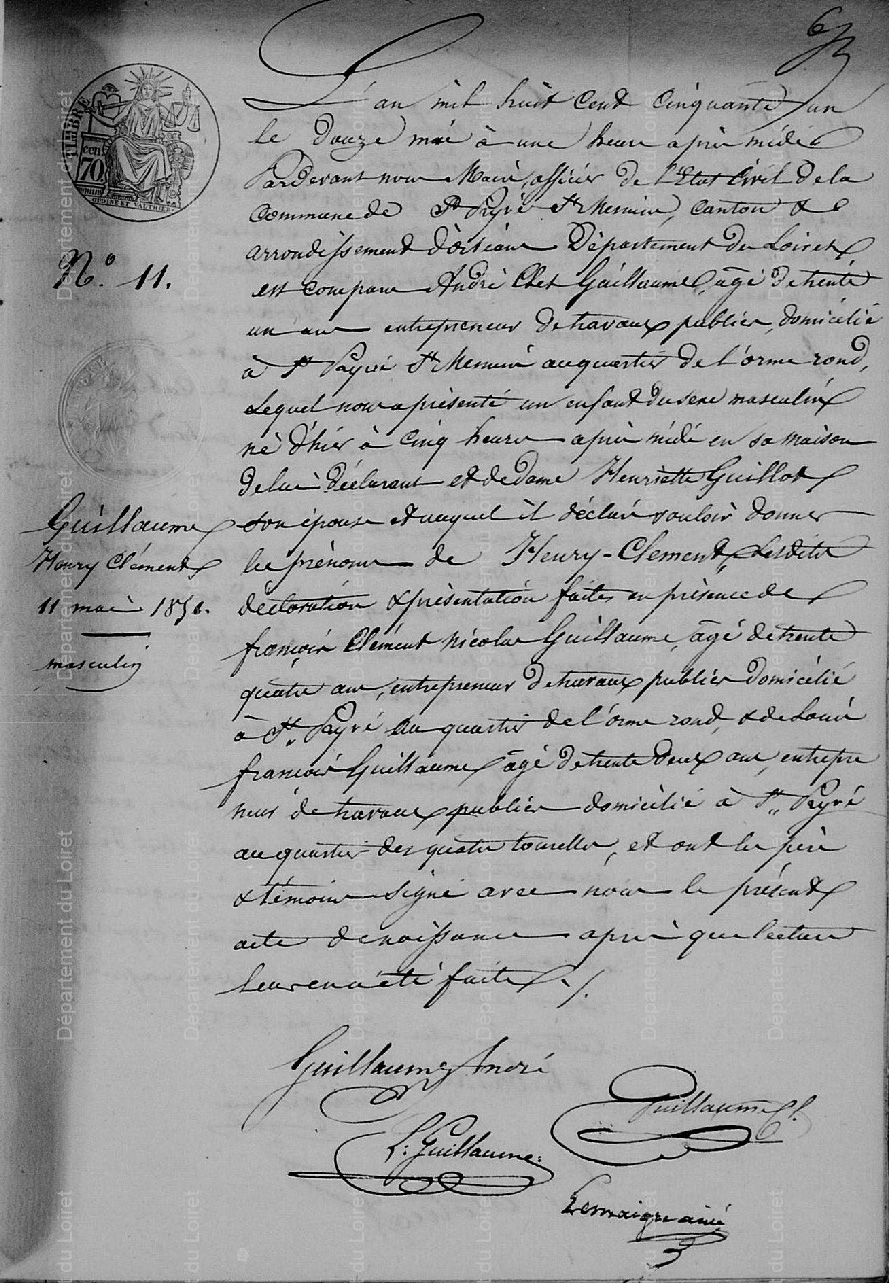 6
L'an mil huit cent cinquante un
le douze mai à une heure après midi
Pardevant nous Maire, officier de l'Etat Civil de la
Commune de St Pryvé St Mesmin, canton &
arrondissement d'orléans Département du Loiret
est comparu André Chet Guillaume, âgé de trente
un ans entrepreneur de travaux publics, domicilié
TIMBRE
70
cen
N.o 11.
à St Pryvé St Mesmin au quartier de l'orme rond,
Lequel nous a présenté un enfant du sexe masculin
né d'hier à cinq heures après midi en sa maison
de lui déclarant et de Dame Henriette Guillot
son épouse et auquel il déclare vouloir donner
les prénoms de Henry-Clement, Lesdites
déclaration & présentation faites en présence de
françois Clément Nicolas Guillaume, âgé de trente
quatre ans, entrepreneur de travaux publics domicilié
à St Pryvé au quartier de l'orme rond, & de Louis
françois Guillaume âgé de trente deux ans, entrepre
neur de travaux publics domicilié à St Pryvé
au quartier des quatre tourelles, et ont les père
& témoins signé avec nous le présent
acte de naissance après que lecture
leur en a été faite ./.
Guillaume
Henry Clément
11 mai 1851.
masculin
Guillaume André
Guillaume C.
L. Guillaume
Lemaigre ainé
Département du Loiret
Département du Loiret
Département du Loiret